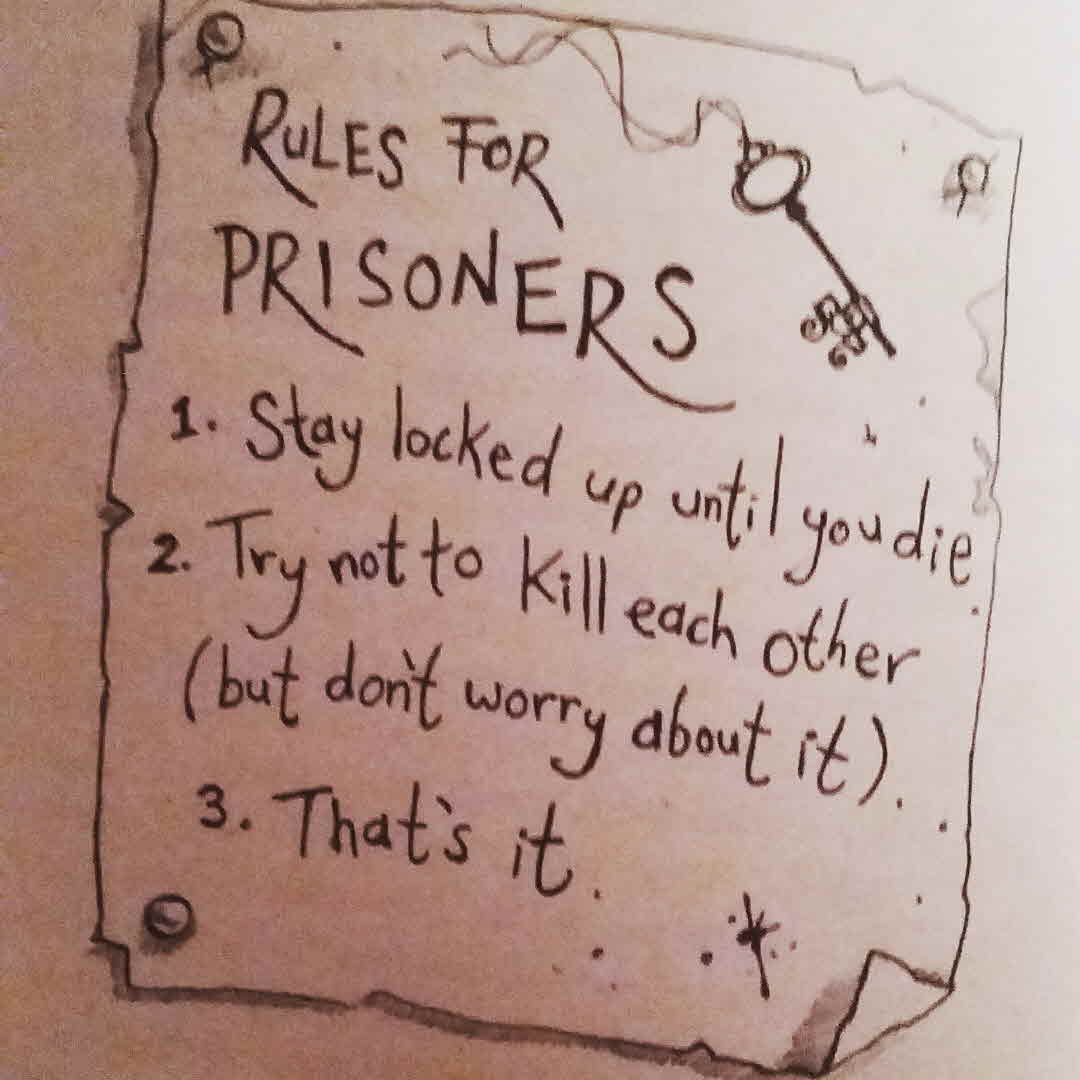 RULES FOR
PRISONERS
1. Stay locked up until you die.
2. Try not to kill each other
(but don't worry about it).
3. That's it.